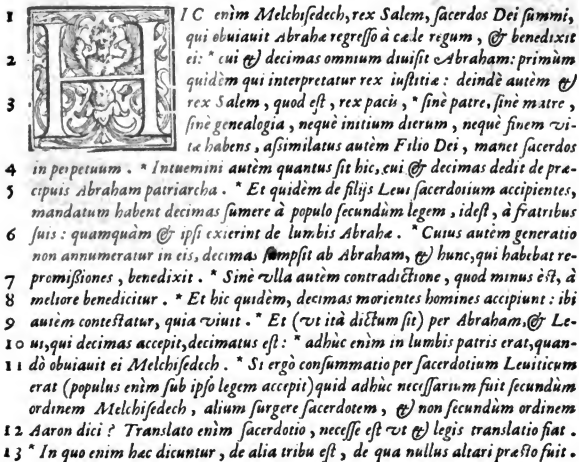 1 HIC enìm Melchiſedech, rex Salem, ſacerdos Dei ſummi,
qui obuiauit Abrahæ regreſſo à cæde regum, & benedixit
2 ei: * cui & decimas omnium diuiſit Abraham: primùm
quidèm qui interpretatur rex iuſtitiæ: deindè autèm &
3 rex Salem, quod eſt, rex pacis, * ſinè patre, ſinè matre,
ſinè genealogia, nequè initium dierum, nequè finem vi-
tæ habens, aſsimilatus autèm Filio Dei, manet ſacerdos
4 in perpetuum. * Intuemini autèm quantus ſit hic, cui & decimas dedit de præ-
5 cipuis Abraham patriarcha. * Et quidèm de filijs Leui ſacerdotium accipientes,
mandatum habent decimas ſumere à populo ſecundùm legem, ideſt, à fratribus
6 ſuis: quamquàm & ipſi exierint de lumbis Abrahæ. * Cuius autèm generatio
non annumeratur in eis, decimas ſumpſit ab Abraham, & hunc, qui habebat re-
7 promiſsiones, benedixit. * Sinè vlla autèm contradictione, quod minus èſt, à
8 meliore benedicitur. * Et hic quidèm, decimas morientes homines accipiunt: ibi
9 autèm conteſtatur, quia viuit. * Et (vt ità dictum ſit) per Abraham, & Le-
10 ui, qui decimas accepit, decimatus eſt: * adhùc enìm in lumbis patris erat, quan-
11 dò obuiauit ei Melchiſedech. * Si ergò conſummatio per ſacerdotium Leuiticum
erat (populus enìm ſub ipſo legem accepit) quid adhùc neceſſarium fuit ſecundùm
ordinem Melchiſedech, alium ſurgere ſacerdotem, & non ſecundùm ordinem
12 Aaron dici? Translato enìm ſacerdotio, neceſſe eſt vt & legis translatio fiat.
13 * In quo enìm hæc dicuntur, de alia tribu eſt, de qua nullus altari præſto fuit.